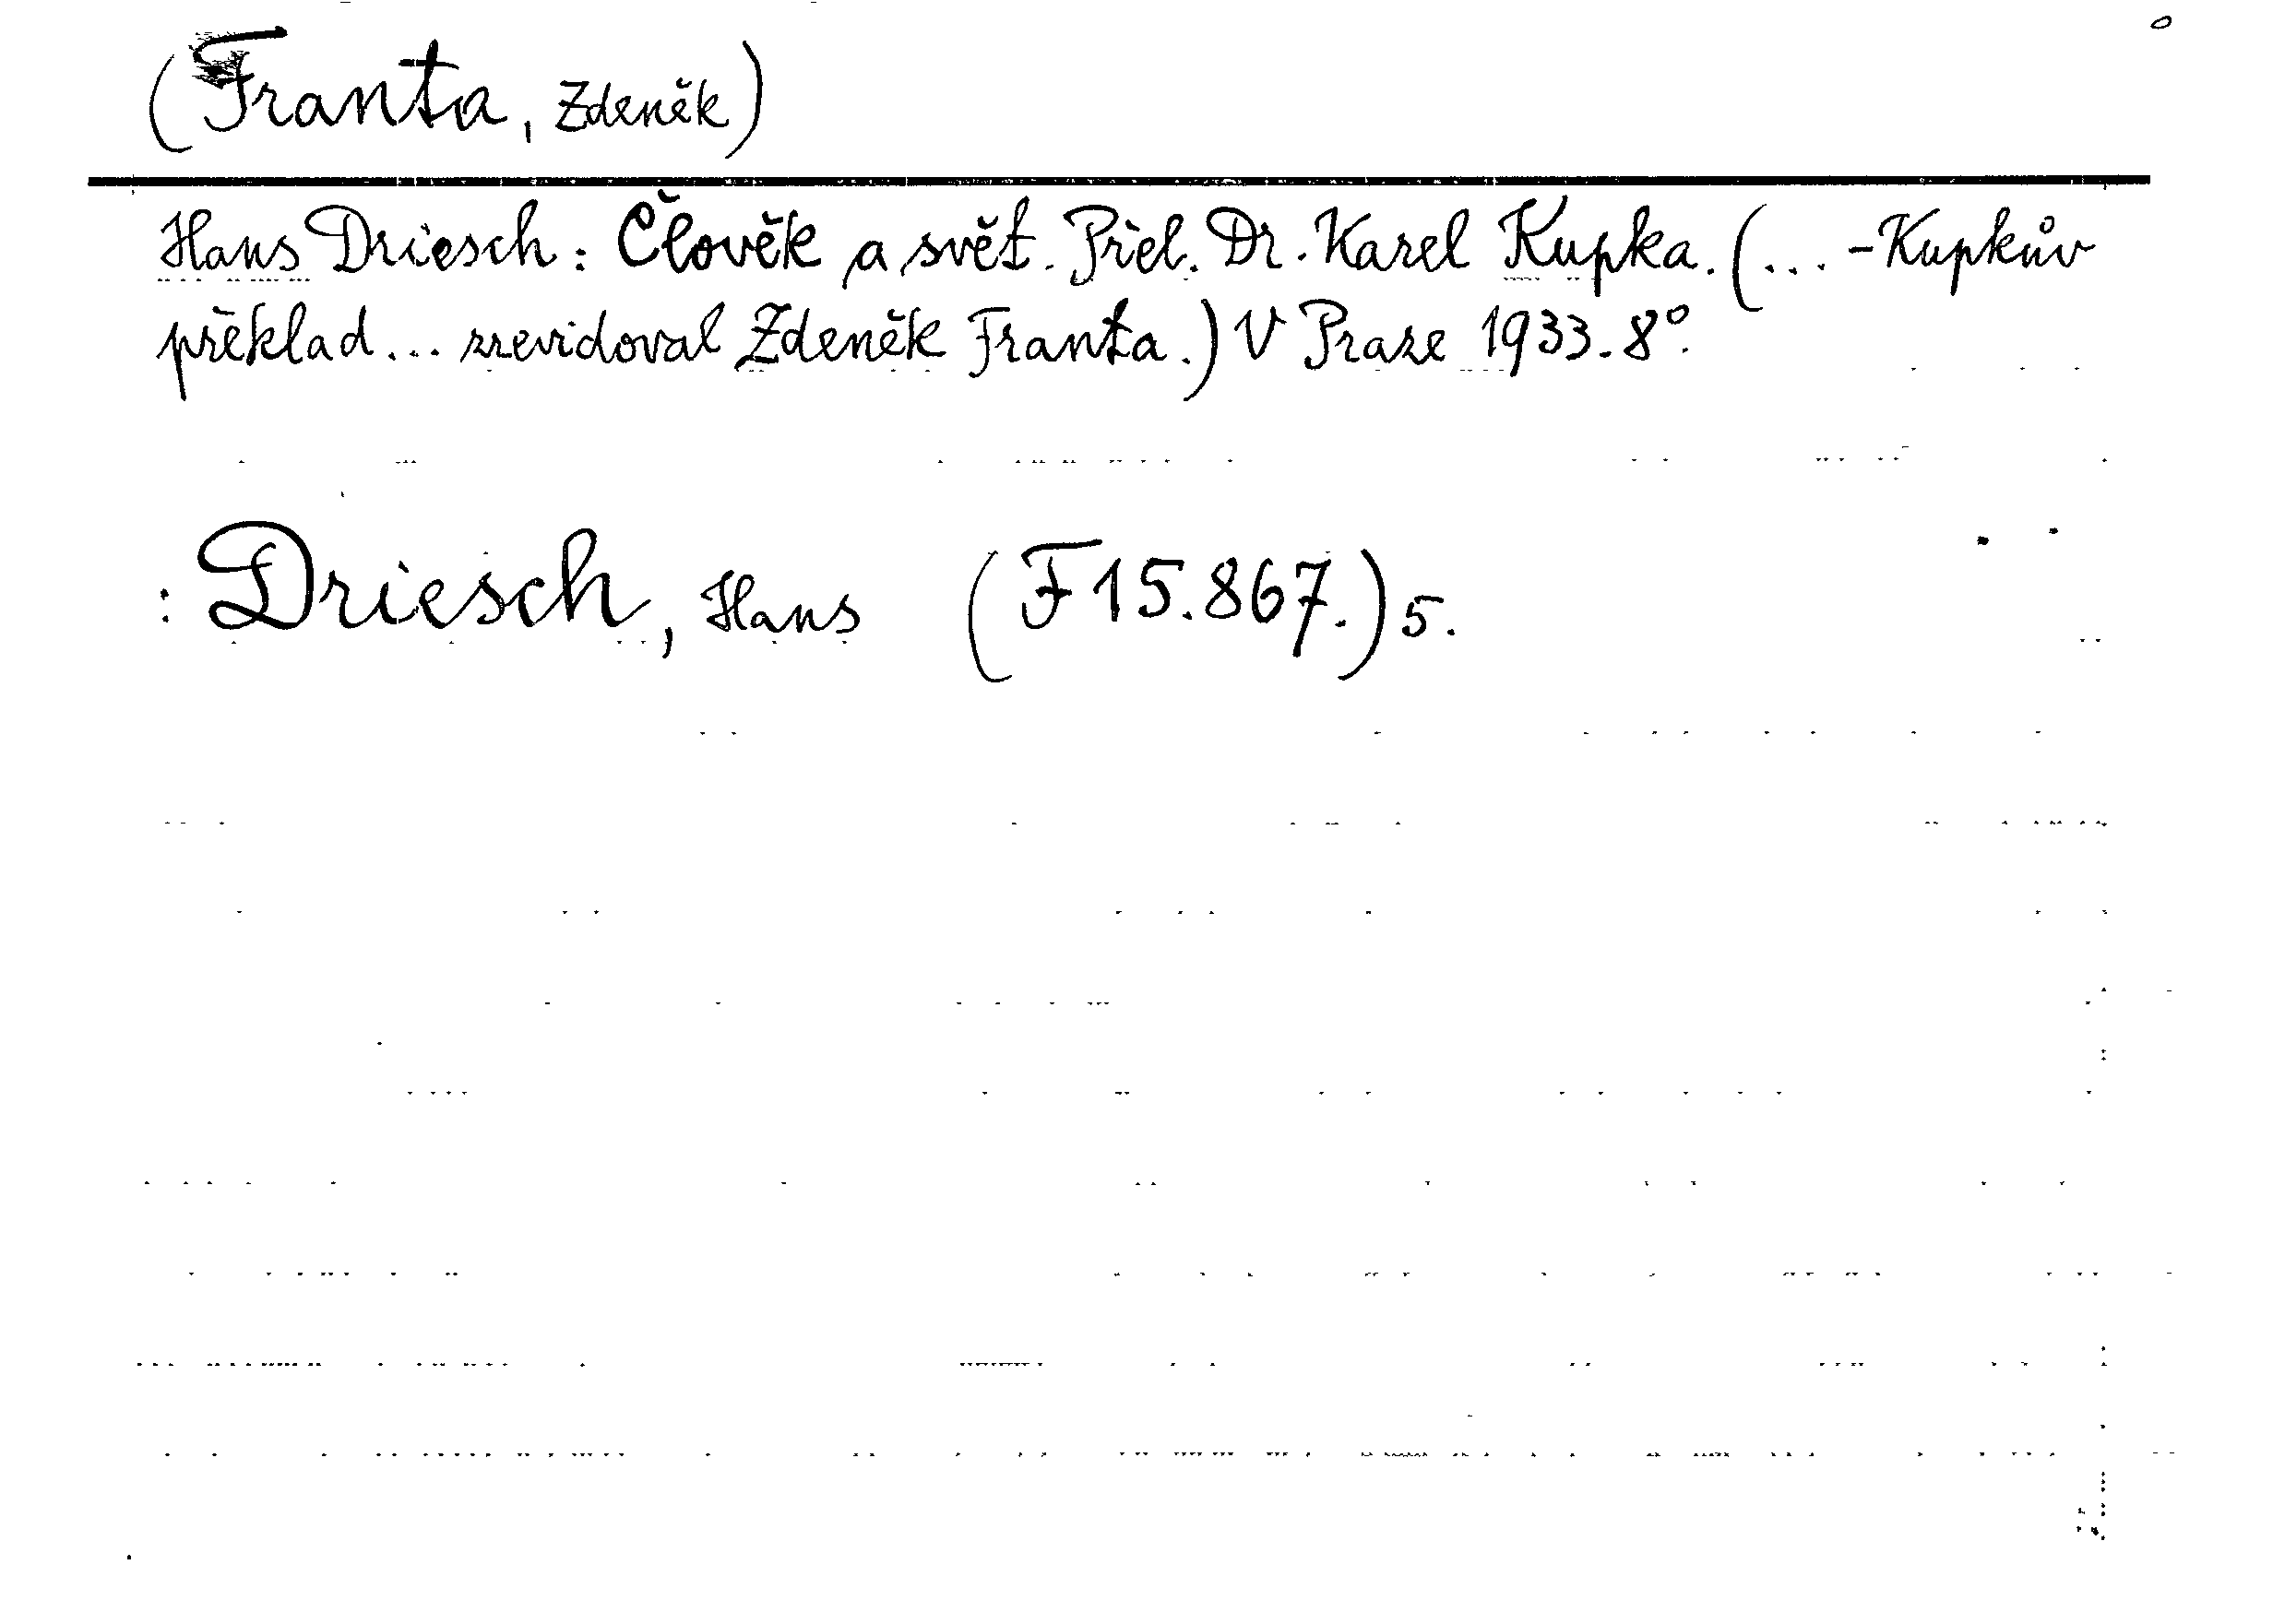 (Franta, Zdeněk)
Hans Driesch: Člověk a svět. Přel. Dr. Karel Kupka. (... -Kupkův
překlad... zrevidoval Zdeněk Franta.) V Praze 1933. 8°.
: Driesch, Hans (F 15.867.) 5.